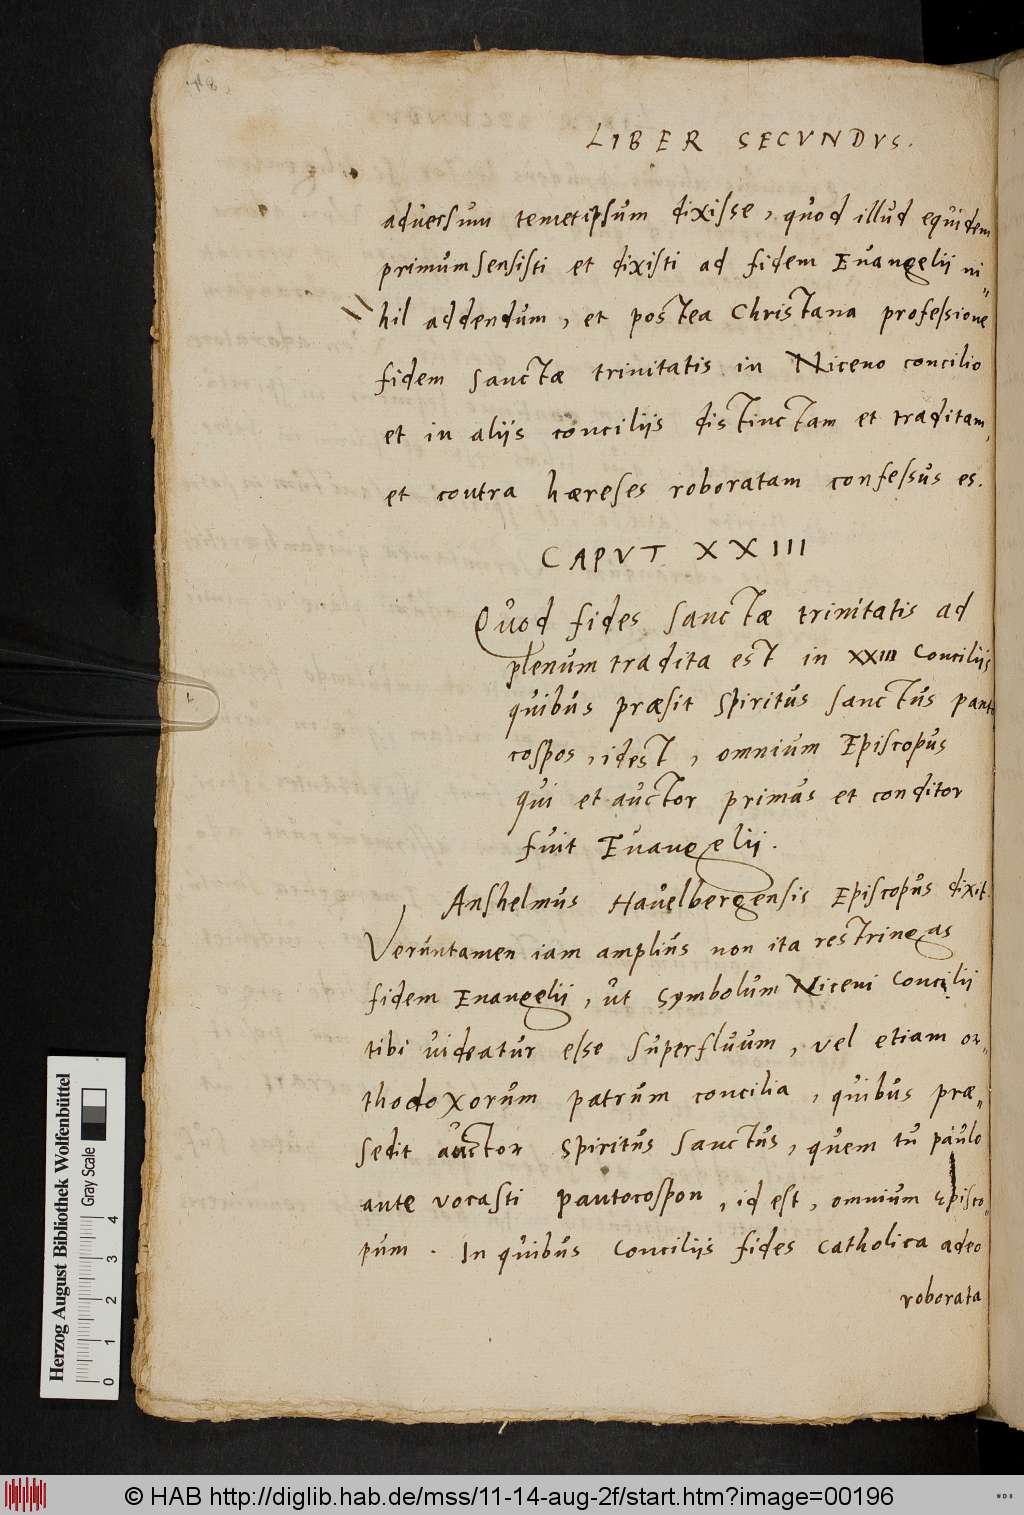 LIBER SECVNDVS.
adversum temetipsum dixisse, quod illud equidem
primum sensisti et dixisti ad fidem Evangelii ni„
hil addendum, et postea Christana professione
fidem sanctæ trinitatis in Niceno concilio
et in aliis conciliis distinctam et traditam,
et contra hæreses roboratam confessus es.
CAPVT XXIII
Quod fides sanctæ trinitatis ad
plenum tradita est in XXIII Conciliis
quibus præsit spiritus sanctus panto
cospos, idest, omnium Episcopus
qui et auctor primus et conditor
fuit Evangelii.
Anshelmus Havelbergensis Episcopus dixit.
Veruntamen iam amplius non ita restringas
fidem Euangelii, ut symbolum Niceni Concilii
tibi videatur esse superfluum, vel etiam or„
thodoxorum patrum concilia, quibus præ„
sedit auctor spiritus sanctus, quem tu paulo
ante vocasti pantocospon, id est, omnium Episco„
pum. In quibus Conciliis fides catholica adeo
roborata
Herzog August Bibliothek Wolfenbüttel
Gray Scale
0 1 2 3 4
© HAB http://diglib.hab.de/mss/11-14-aug-2f/start.htm?image=00196